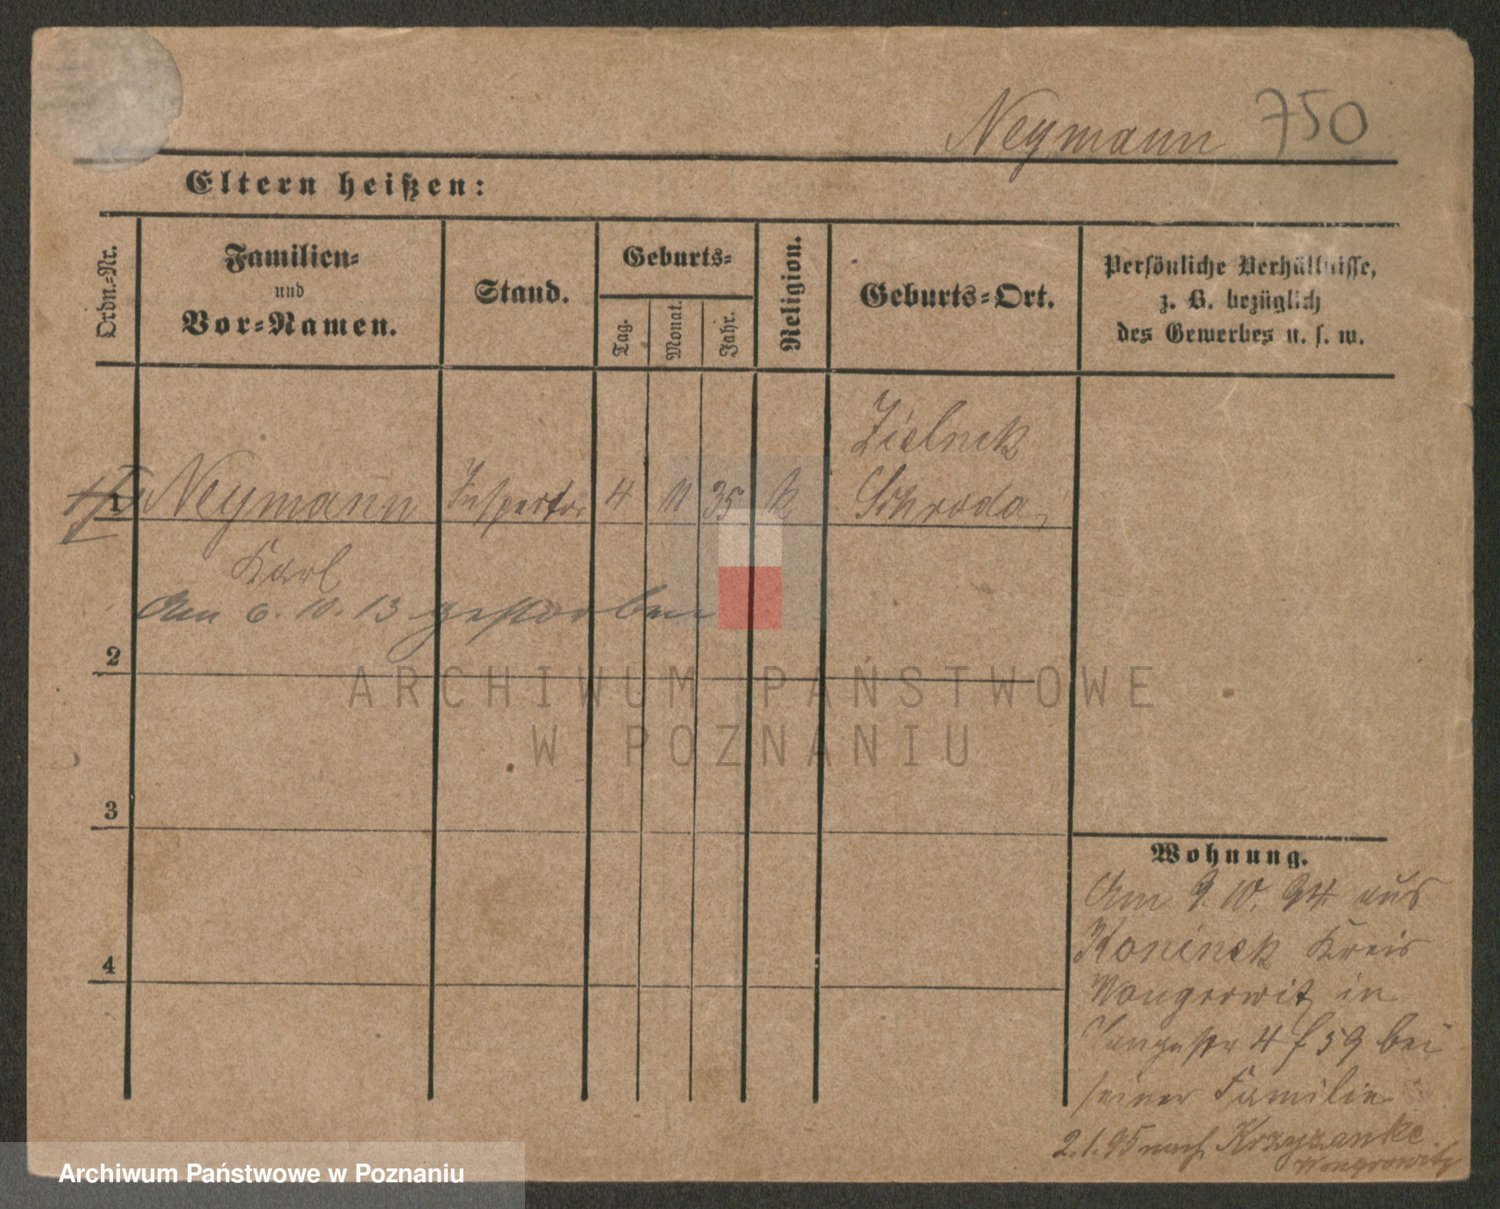 Neymann 750
Eltern heißen:
Ordn.-Nr.
Familien-
und
Vor-Namen.
Stand.
Geburts-
Tag.
Monat.
Jahr.
Religion.
Geburts-Ort.
Persönliche Verhältnisse,
z. B. bezüglich
des Gewerbes u. s. w.
Zielnik
1 Neymann Inspektor 4 11 35 k Schroda
Karl
Am 6. 10. 13 gestorben
2
3
4
Wohnung.
Am 9. 10. 94. aus
Koninek Kreis
Wongrowitz in
Langestr 4 f 59 bei
seiner Familie
2.1.95 nach
Wongrowitz
ARCHIWUM PAŃSTWOWE
W POZNANIU
Archiwum Państwowe w Poznaniu